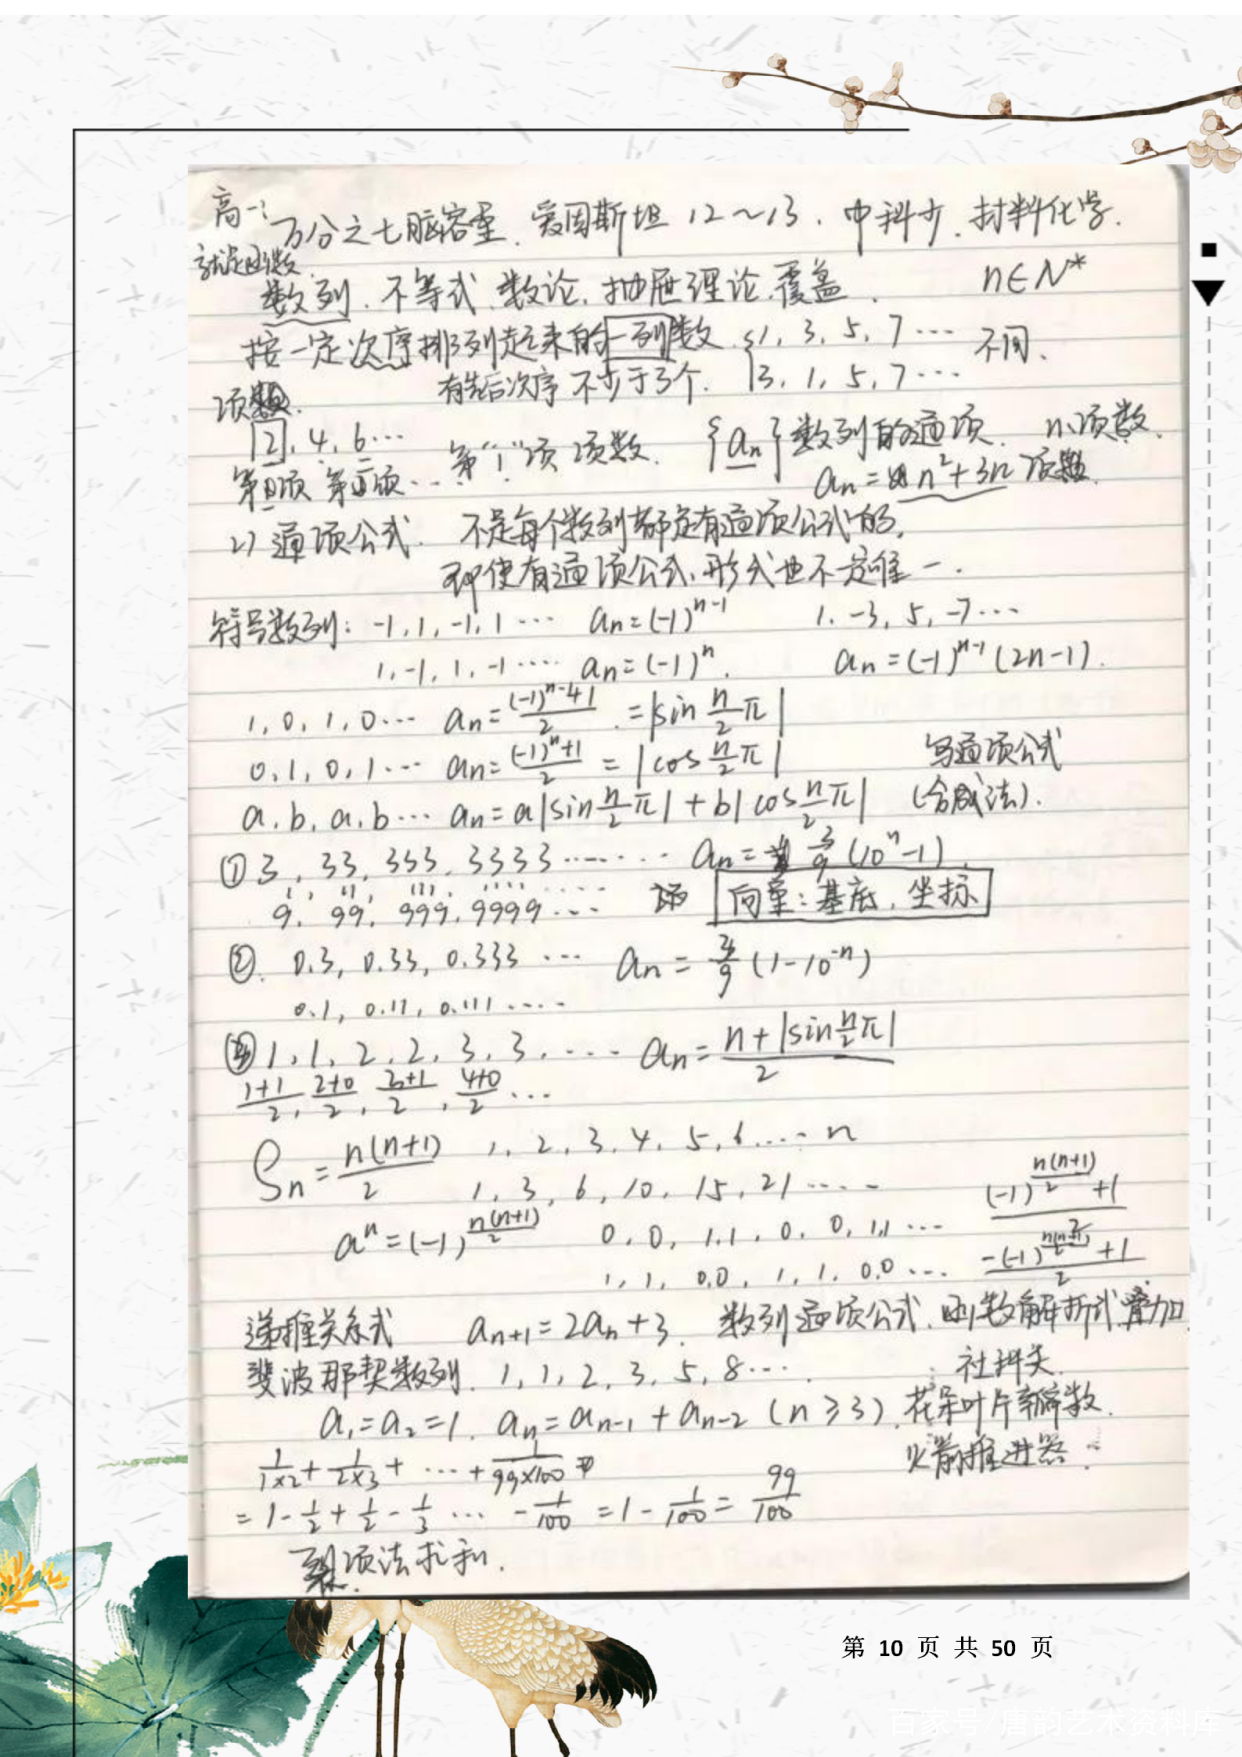 高一:
万分之七脑容量. 爱因斯坦 12～13. 中科少. 材料化学.
就是函数.
数列. 不等式. 数论. 抽屉理论. 覆盖. n∈N*
按一定次序排列起来的一列数. {1, 3, 5, 7 … 不同.
有先后次序 不少于3个. 3, 1, 5, 7 …
项数.
2, 4, 6 … 第“1”项 项数. {an} 数列的通项. n:项数.
第1项 第3项 … an = n²+3n 项数.
2) 通项公式. 不是每个数列都是有通项公式的.
即使有通项公式, 形式也不一定唯一.
符号数列: -1, 1, -1, 1 … an=(-1)^{n-1} 1. -3, 5, -7 …
1, -1, 1, -1 …. an=(-1)^n. an=(-1)^{n-1}(2n-1).
1, 0, 1, 0 … an= ((-1)^{n-1}+1)/2 . =|sin n/2 π|
0, 1, 0, 1 … an= ((-1)^n+1)/2 = |cos n/2 π| 写通项公式
a, b, a, b … an= a|sin n/2 π| + b|cos n/2 π| (合成法).
① 3, 33, 333, 3333 …… an= 3/9 (10^n-1).
1, 11, 111, 1111 ….
9, 99, 999, 9999 … 向量: 基底. 坐标
②. 0.3, 0.33, 0.333 … an = 3/9 (1-10^{-n})
0.1, 0.11, 0.111 ….
③ 1, 1, 2, 2, 3, 3, …. an= (n+|sin n/2 π|)/2
(1+1)/2, (2+0)/2, (3+1)/2, (4+0)/2 …
Sn= n(n+1)/2 1, 2, 3, 4, 5, 6 …. n
1, 3, 6, 10, 15, 21 ….
a^n=(-1)^{n(n+1)/2} 0, 0, 1, 1, 0, 0, 1, 1 … ((-1)^{n(n+1)/2}+1)/2
1, 1, 0, 0, 1, 1, 0, 0 … (-(-1)^{n(n+1)/2}+1)/2
递推关系式 an+1=2an+3. 数列通项公式. 函数解析式 叠加
斐波那契数列. 1, 1, 2, 3, 5, 8 …
a1=a2=1. an=an-1+an-2 (n≥3). 花朵叶片瓣数.
1/(1×2) + 1/(2×3) + … + 1/(99×100) 火箭推进器.
=1-1/2+1/2-1/3 … -1/100 =1-1/100= 99/100
裂项法求和.
第 10 页 共 50 页
百家号 唐韵艺术资料库